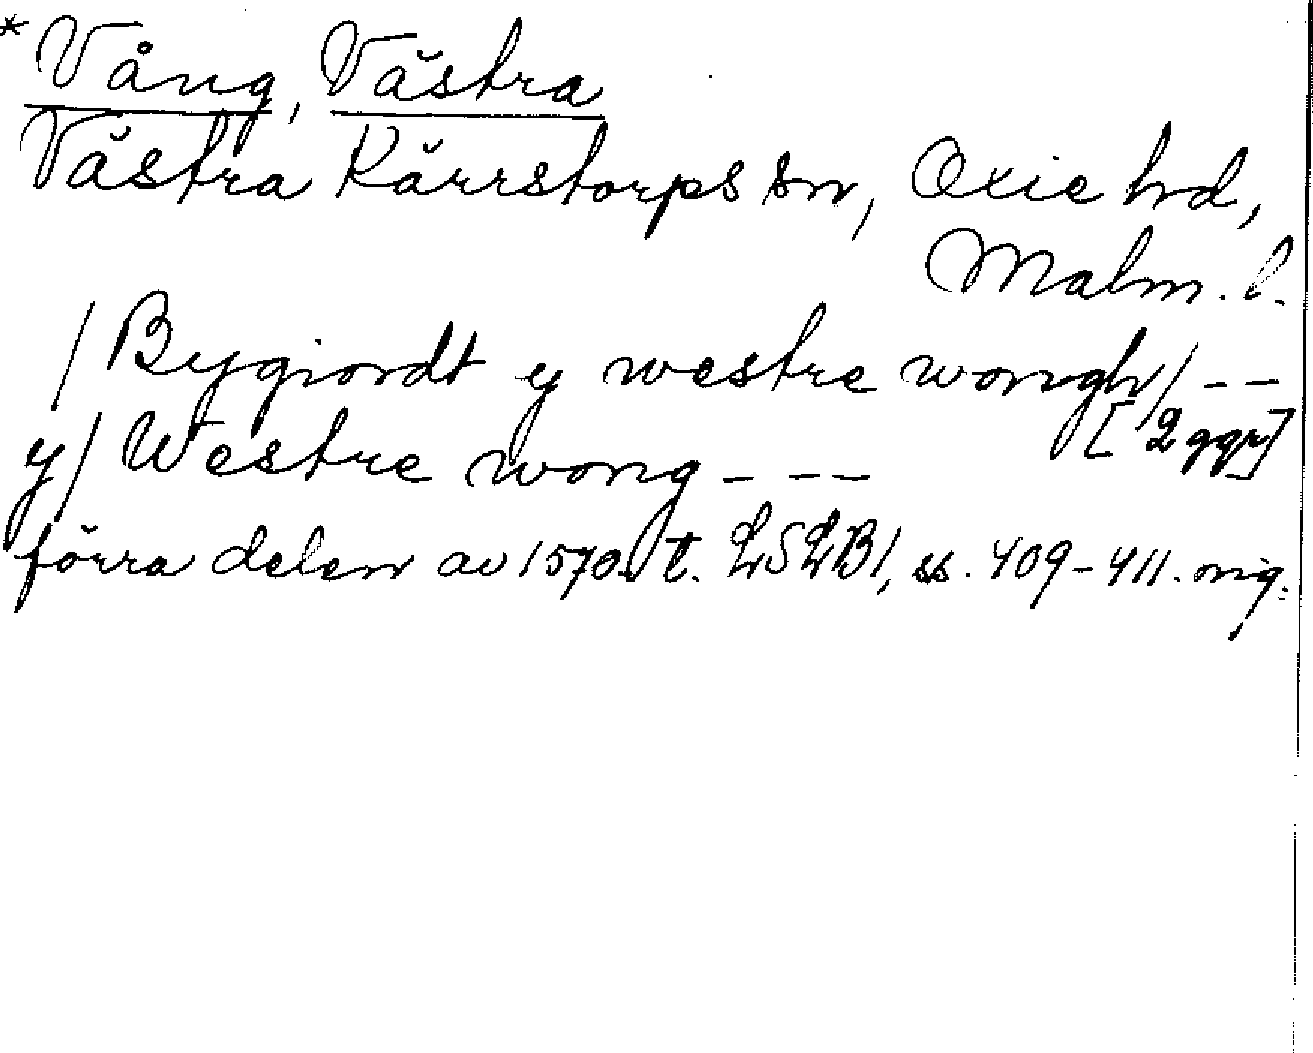 *Vång, Västra
Västra Kärrstorps sn, Oxie hd,
Malm. l.
/Bygiordt y westre wongh/ --
[2 ggr]
y/ Westre wong ---
förra delen av 1570. t. LSLB1, ss. 409-411. orig.